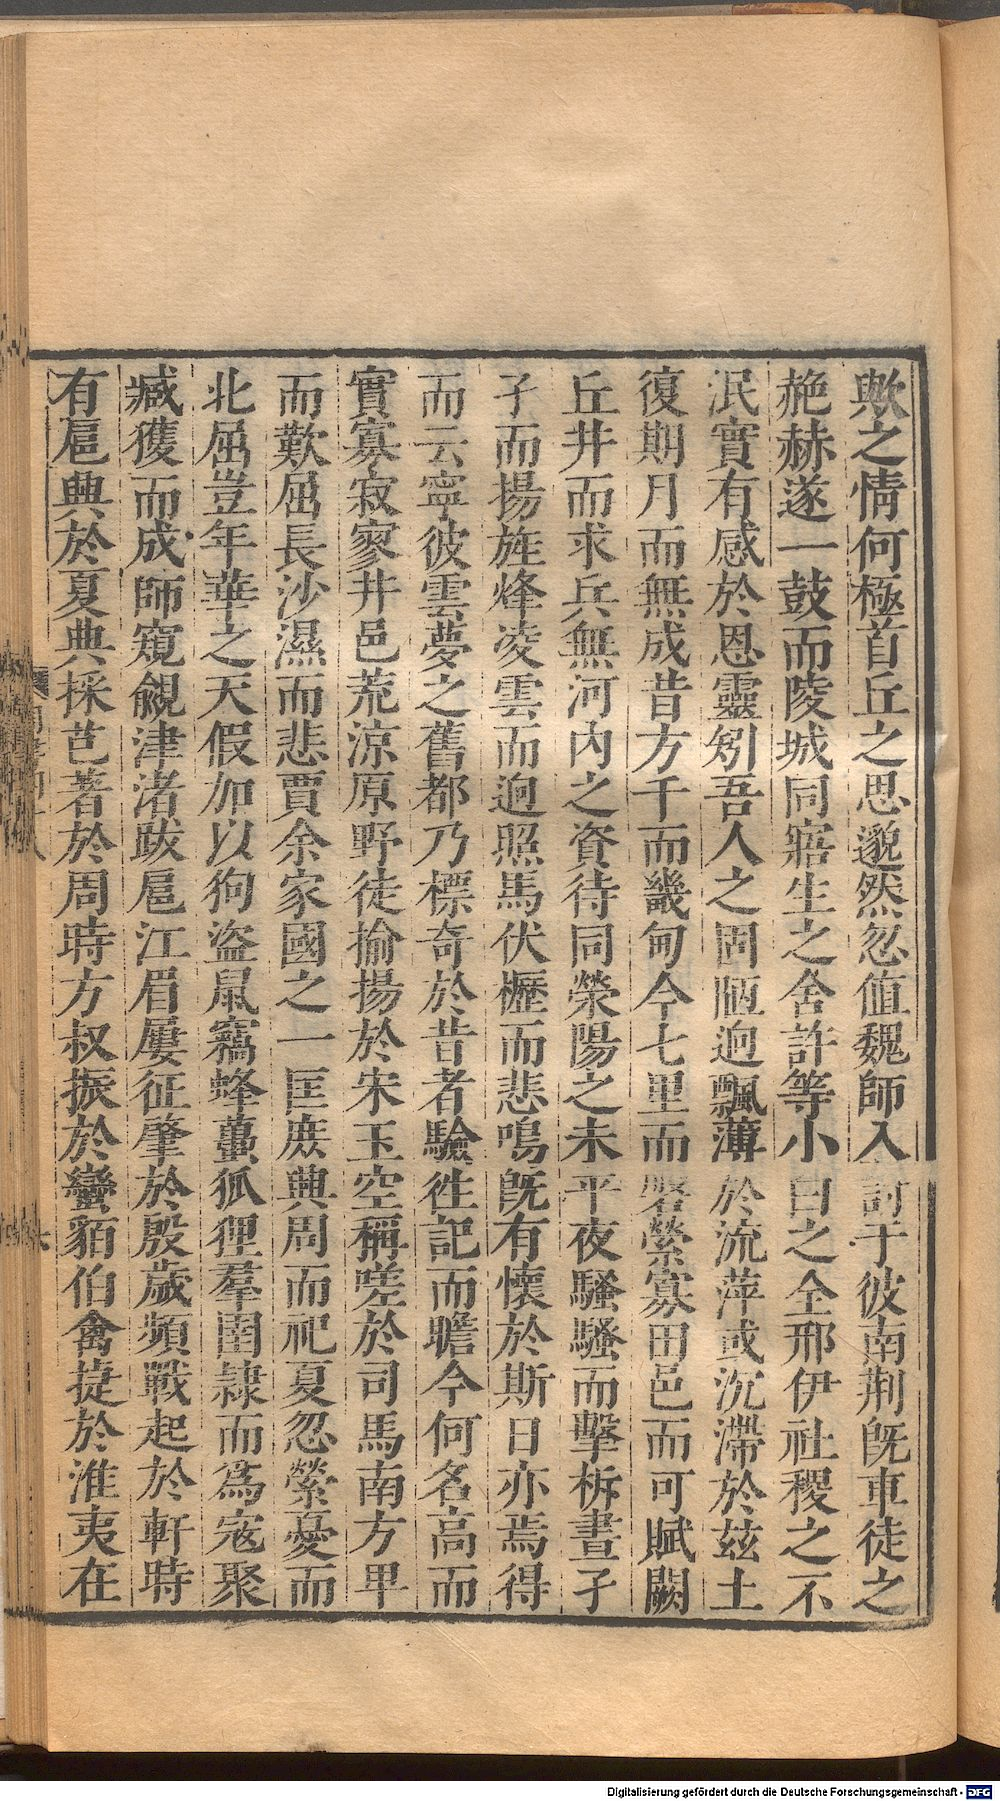 歟之情何極首丘之思邈然忽值魏師入討于彼南荆旣車徒之
赩赫遂一鼓而陵城同寤生之舍許等小白之全邢伊社稷之不
泯實有感於恩靈矧吾人之固陋迥飄薄於流萍或沉滯於兹土
復期月而無成昔方千而畿甸今七里而磐縈寡田邑而可賦闕
丘井而求兵無河内之資待同滎陽之未平夜騷騷而擊柝晝孑
孑而揚旌烽凌雲而迥照馬伏櫪而悲鳴旣有懷於斯日亦焉得
而云寧彼雲夢之舊都乃標奇於昔者驗徃記而瞻今何名高而
實寡寂寥井邑荒涼原野徒揄揚於宋玉空稱嗟於司馬南方卑
而歎屈長沙濕而悲賈余家國之一匡庶興周而祀夏忽縈憂而
北屈豈年華之天假加以狗盜鼠竊蜂蠆狐狸羣圉隷而爲寇聚
臧獲而成師窺覦津渚跋扈江眉屢征肇於殷歲頻戰起於軒時
有扈興於夏典採芑著於周時方叔振於蠻貊伯禽捷於淮夷在
Digitalisierung gefördert durch die Deutsche Forschungsgemeinschaft - DFG